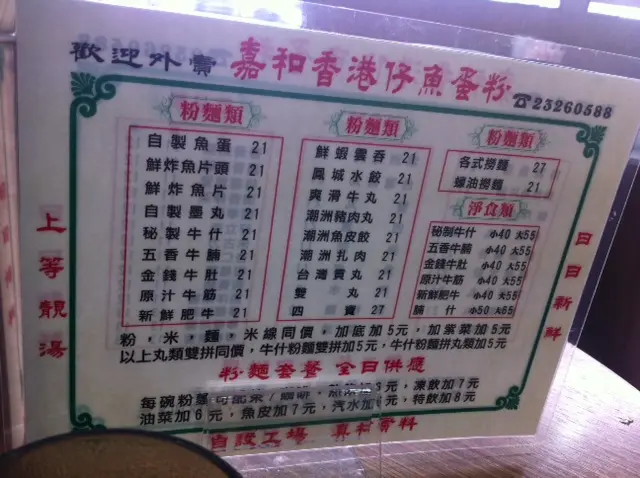 歡迎外賣 嘉和香港仔魚蛋粉 ☎23260588
粉麵類
自製魚蛋 21
鮮炸魚片頭 21
鮮炸魚片 21
自製墨丸 21
秘製牛什 21
五香牛腩 21
金錢牛肚 21
原汁牛筋 21
新鮮肥牛 21
粉麵類
鮮蝦雲吞 21
鳳城水餃 21
爽滑牛丸 21
潮洲豬肉丸 21
潮洲魚皮餃 21
潮洲扎肉 21
台灣貢丸 21
雙丸 21
四寶 27
粉麵類
各式撈麵 27
蠔油撈麵 21
淨食類
秘制牛什 小40 大55
五香牛腩 小40 大55
金錢牛肚 小40 大55
原汁牛筋 小40 大55
新鮮肥牛 小40 大55
腩什 小50 大60
上等靚湯
日日新鮮
粉,米,麵,米線同價,加底加5元,加紫菜加5元
以上丸類雙拼同價,牛什粉麵雙拼加5元,牛什粉麵拼丸類加5元
粉麵套餐 全日供應
每碗粉麵可配茶/咖啡,熱 元,凍飲加7元
油菜加6元,魚皮加7元,汽水加6元,特飲加8元
自設工場 真材實料